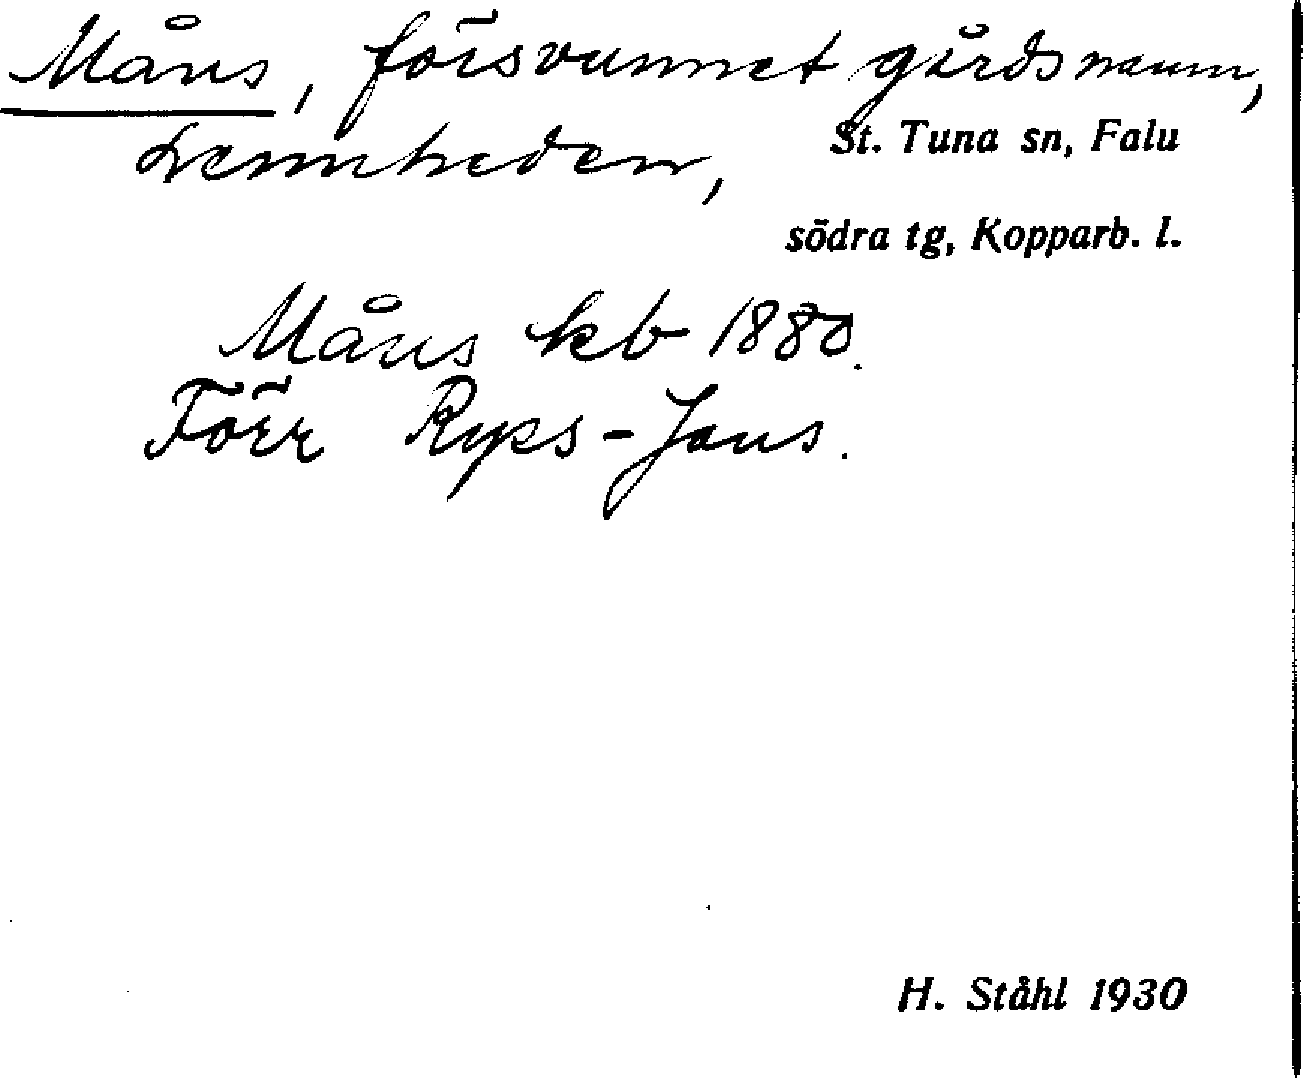 Måns, försvunnet gårdsnamn,
Lennheden, St. Tuna sn, Falu
södra tg, Kopparb. l.
Måns kb 1880.
Förr Ryss-Jans.
H. Ståhl 1930